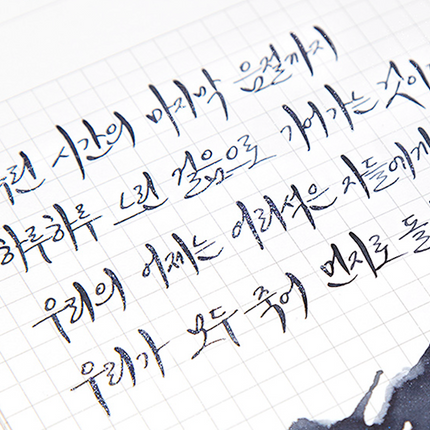 시간의 마지막 음절까지
하루하루 느린 걸음으로 기어가는 것이
우리의 어제는 어리석은 자들에게
우리가 모두 죽어 먼지로 돌